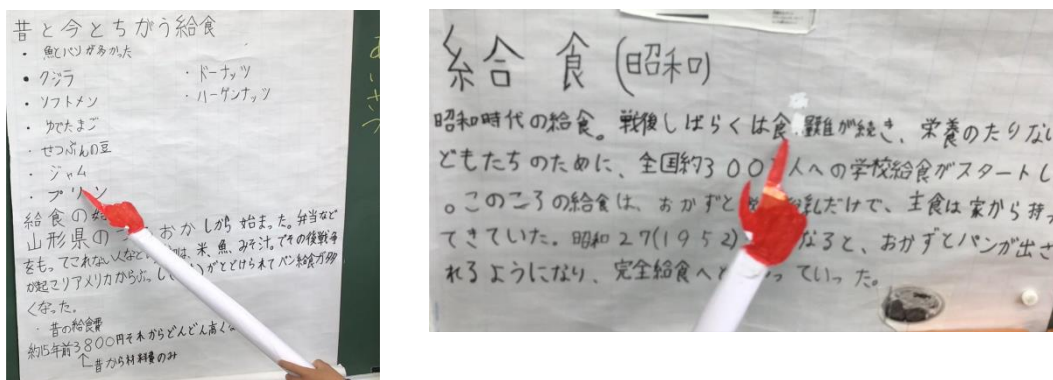 昔と今とちがう給食
・魚とパンが多かった
・クジラ
・ソフトメン
・ゆでたまご
・せつぶんの豆
・ジャム
・プリン
・ドーナッツ
・ハーゲンナッツ
給食の始
山形県の おか しから 始まった。弁当など
をもってこれない人など は、米、魚、みそ汁。でその後戦争
が起こりアメリカから がとどけられてパン給食が多
くなった。
・昔の給食費
約15年前3800円それからどんどん高く
↑昔から材料費のみ
あいさつ
給食(昭和)
昭和時代の給食。戦後しばらくは食 難が続き、栄養のたりない
どもたちのために、全国約300 人への学校給食がスタートし
。このころの給食は、おかずと 乳だけで、主食は家から持っ
てきていた。昭和27(1952) なると、おかずとパンが出さ
れるようになり、完全給食へと っていった。